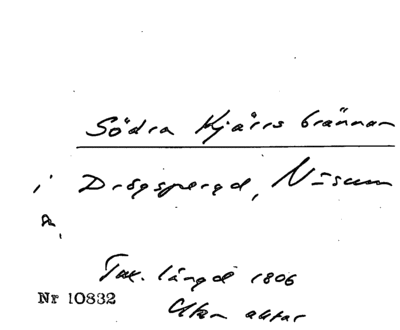 Södra Kjärrs brännan
i Drögsperyd, N=sum
Tax. längd 1806
Nr 10832 Utan aktar